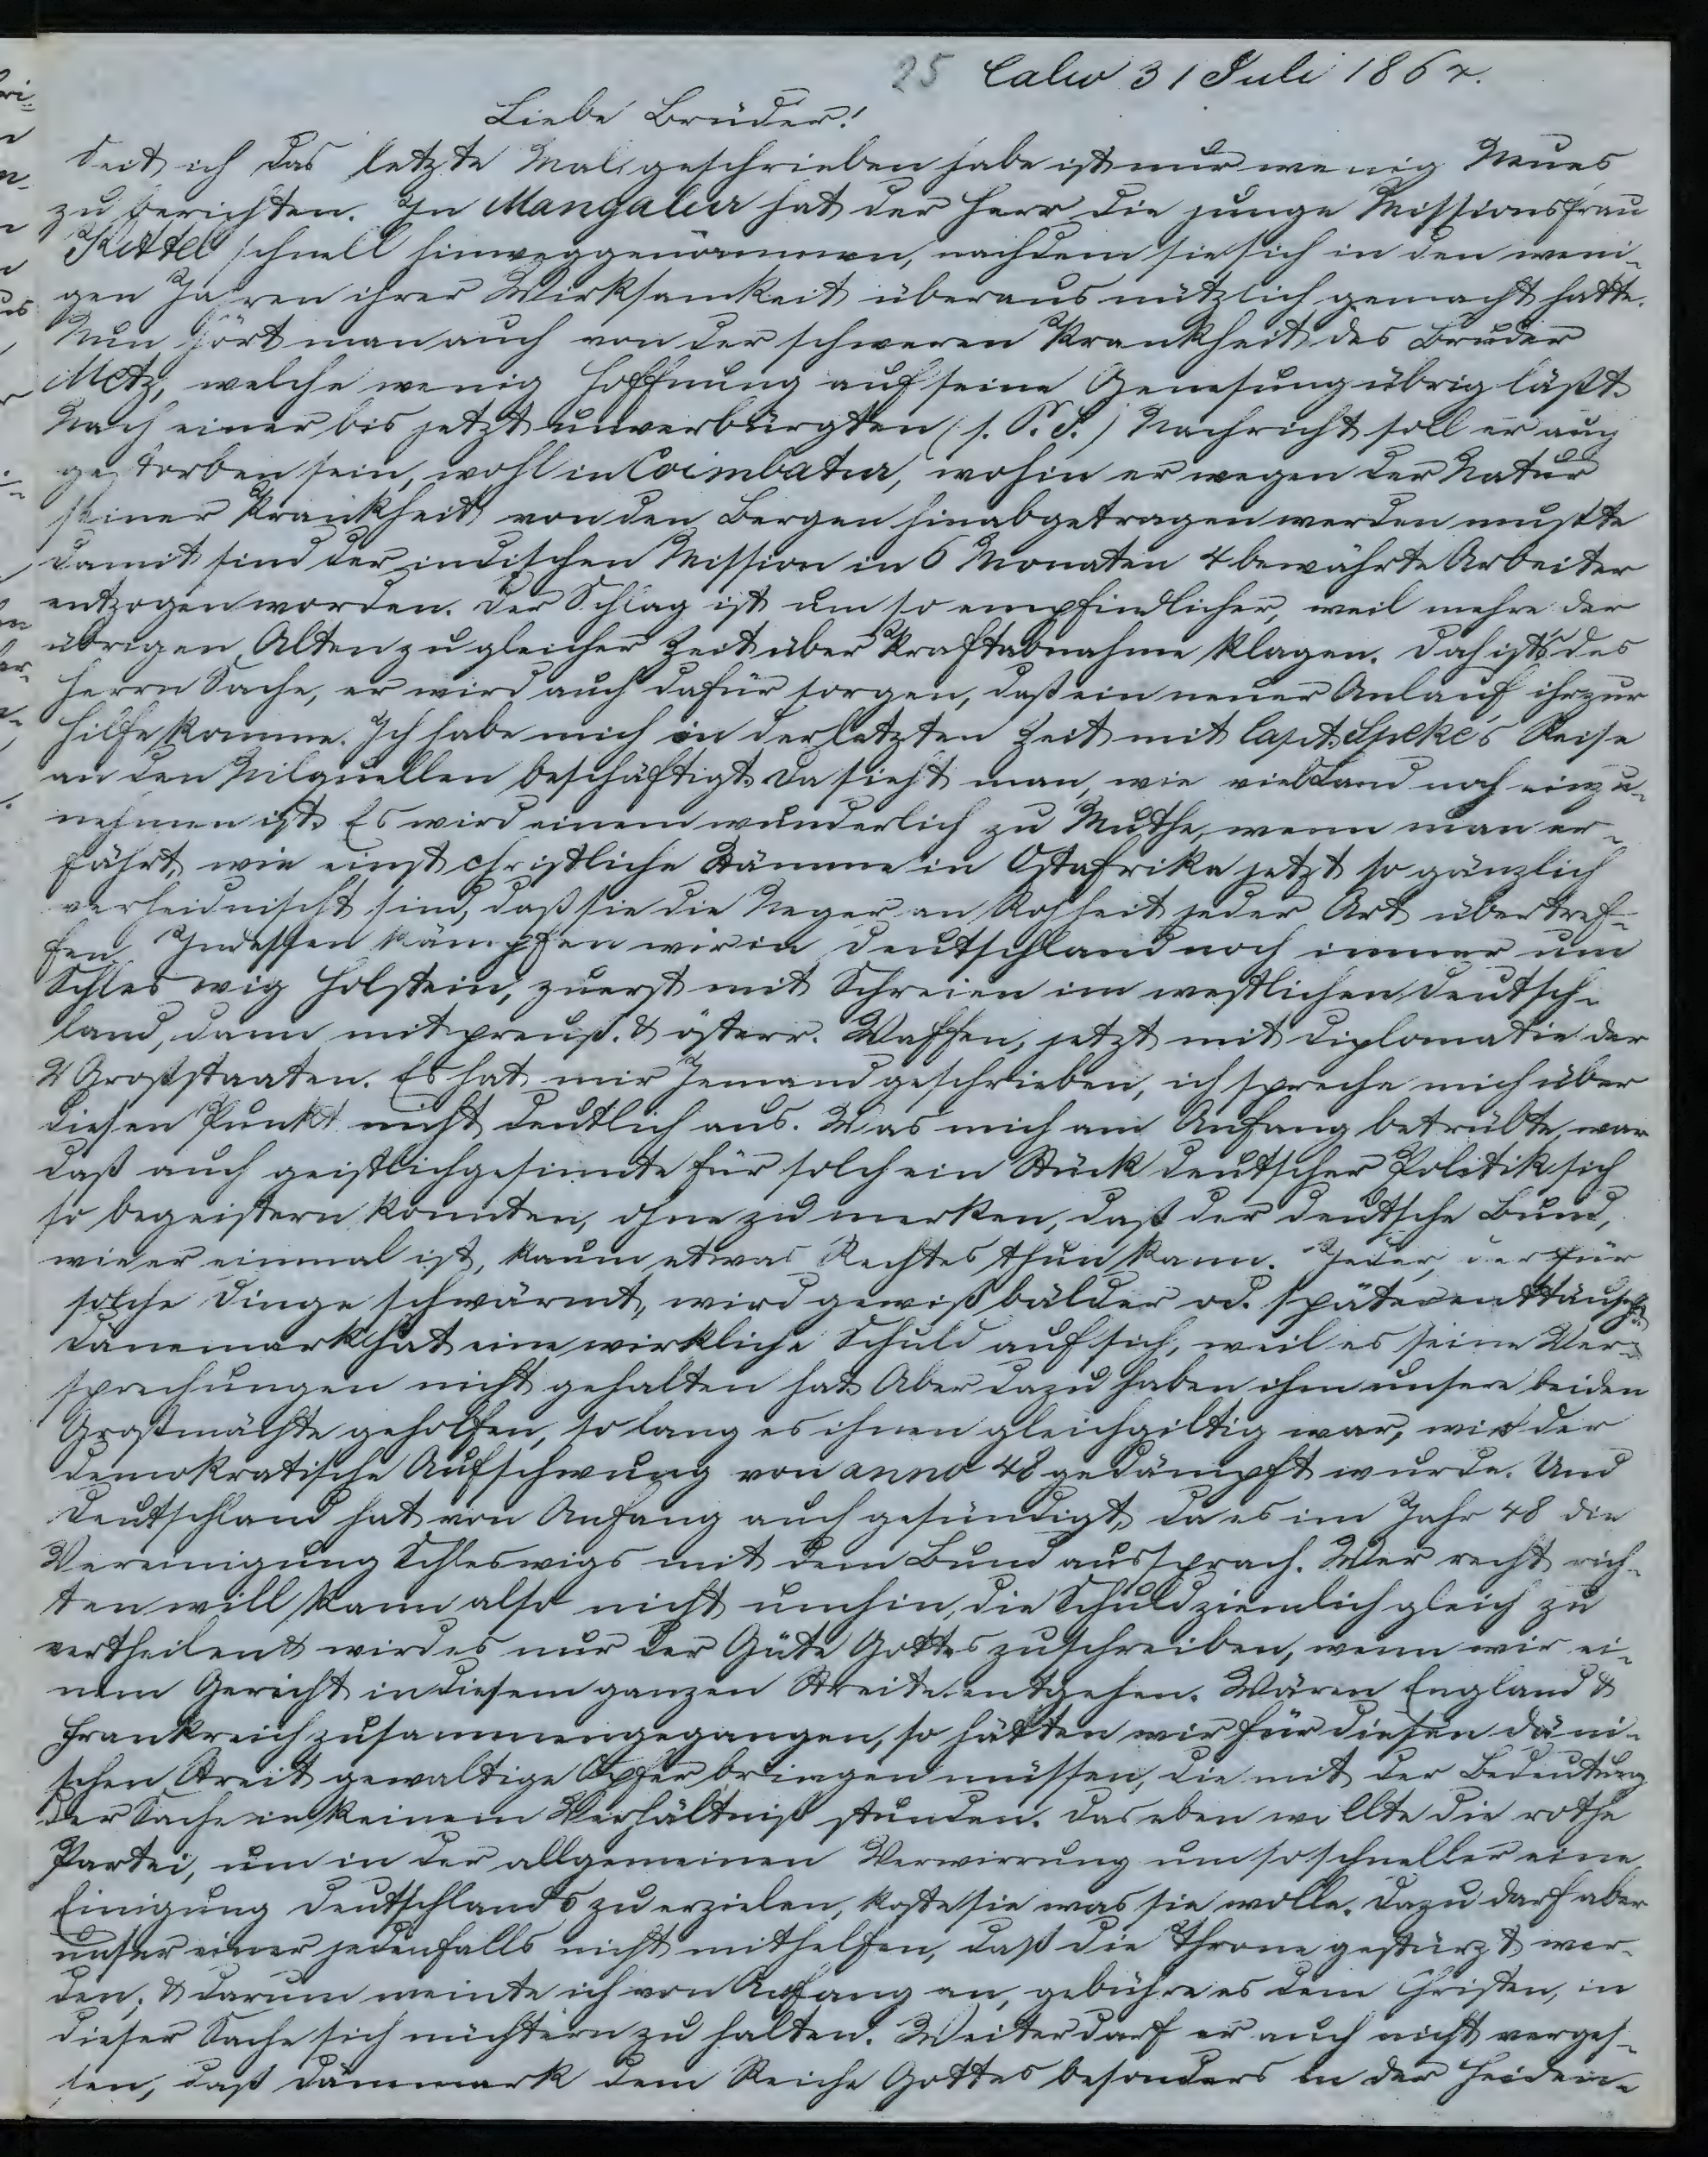 25 Calw 31 Juli 1864.
Liebe Brüder!
Seit ich das letzte Mal geschrieben habe ist nur wenig Neues
zu berichten. In Mangalur hat der Herr die junge Missionsfrau
Kittel schnell hinweggenommen, nachdem sie sich in den weni-
gen Jahren ihrer Wirksamkeit überaus nützlich gemacht hatte.
Nun hört man auch von der schweren Krankheit des Bruder
Metz, welche wenig Hoffnung auf seine Genesung übrig läßt.
Nach einer bis jetzt unverbürgten (s. P. S.) Nachricht soll er auch
gestorben sein, wohl in Coimbatur, wohin er wegen der Natur
seiner Krankheit von den Bergen hinabgetragen werden mußte
damit sind der indischen Mission in 6 Monaten 4 bewährte Arbeiter
entzogen worden. Der Schlag ist um so empfindlicher, weil mehre der
übrigen Alten zu gleicher Zeit über Kraftabnahme klagen. Doch ists des
Herrn Sache, er wird auch dafür sorgen, daß ein neuer Anlauf ihr zur
Hilfe komme. Ich habe mich in der letzten Zeit mit Capt. Speke's Reise
an den Nilquellen beschäftigt. Da sieht man, wie viel Land noch einzu-
nehmen ist. Es wird einem wunderlich zu Muthe, wenn man er-
fährt, wie einst christliche Stämme in Ostafrika jetzt so gänzlich
verheidnischt sind, daß sie die Neger an Rohheit jeder Art übertref-
fen. Indessen kämpfen wir in Deutschland noch immer um
Schleswig Holstein, zuerst mit Schreien im westlichen Deutsch-
land, dann mit preuß. & österr. Waffen, jetzt mit Diplomatie der
2 Großstaaten. Es hat mir Jemand geschrieben, ich spreche mich über
diesen Punkt nicht deutlich aus. Was mich am Anfang betrübte, war
daß auch geistlichgesinnte für solch ein Stück deutscher Politik sich
so begeistern konnten, ohne zu merken, daß der deutsche Bund,
wie er einmal ist, kaum etwas Rechtes thun kann. Jeder, der für
solche Dinge schwärmt, wird gewiß bälder od. später enttäuscht.
Dänemark hat eine wirkliche Schuld auf sich, weil es seine Ver-
sprechungen nicht gehalten hat. Aber dazu haben ihm unsere beiden
Großmächte geholfen, so lang es ihnen gleichgiltig war, wie der
demokratische Aufschwung von anno 48 gedämpft wurde. Und
Deutschland hat von Anfang auch gesündigt, da es im Jahr 48 die
Vereinigung Schleswigs mit dem Bund aussprach. Wer recht rich-
ten will, kann also nicht umhin, die Schuld ziemlich gleich zu
vertheilen & wird es nur der Güte Gottes zuschreiben, wenn wir ei-
nem Gericht in diesem ganzen Streite entgehen. Wären England &
Frankreich zusammengegangen, so hätten wir für diesen däni-
schen Streit gewaltige Opfer bringen müssen, die mit der Bedeutung
der Sache in keinem Verhältniß stunden. Das eben wollte die rothe
Partei, um in der allgemeinen Verwirrung um so schneller eine
Einigung Deutschlands zu erzielen, koste sie was sie wolle. Dazu darf aber
unser einer jedenfalls nicht mithelfen, daß die Throne gestürzt wer-
den; & darum meinte ich von Anfang an, gebühre es dem Christen, in
dieser Sache sich nüchtern zu halten. Weiter darf er auch nicht verges-
sen, daß Dänemark dem Reiche Gottes besonders in der Heiden-